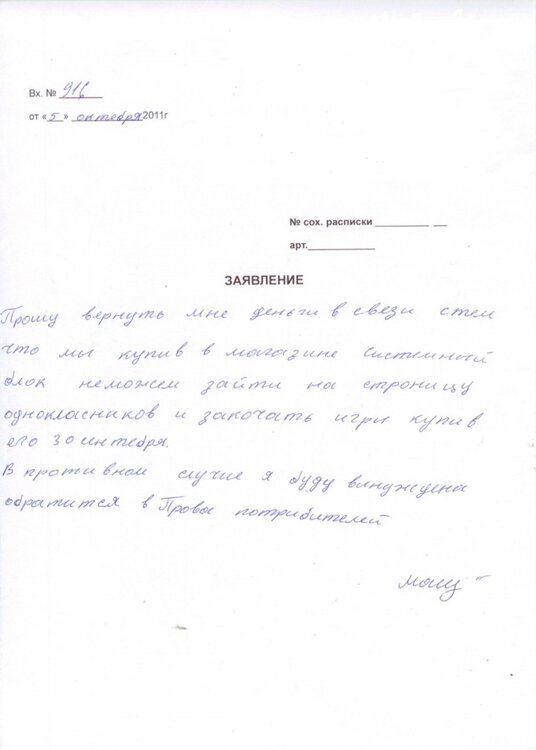 Вх. № 916
от «5» октебря 2011г
№ сох. расписки
арт.
ЗАЯВЛЕНИЕ
Прошу вернуть мне деньги в свези стем
что мы купив в магазине системный
блок неможем зайти на строницу
однокласников и закочать игры купив
его 30 синтебря.
В противном случие я буду винуждена
обратится в Права потрибителей